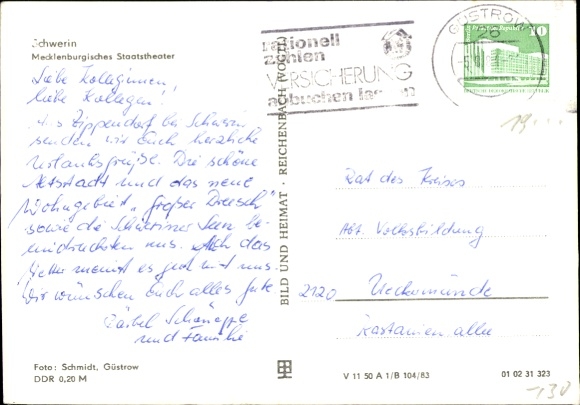 Schwerin
Mecklenburgisches Staatstheater
Liebe Kolleginnen,
liebe Kollegen!
Aus Zippendorf bei Schwerin
senden wir Euch herzliche
Urlaubsgrüße. Die schöne
Altstadt und das neue
Wohngebiet "Großer Dreesch"
sowie die Schweriner Seen be-
eindruckten uns. Auch das
Wetter meint es gut mit uns.
Wir wünschen Euch alles Gute
Bärbel
und Familie
Foto: Schmidt, Güstrow
DDR 0,20 M
BILD UND HEIMAT · REICHENBACH (VOGTL)
rationell
zahlen
VERSICHERUNG
abbuchen lassen
GÜSTROW
10
Rat des Kreises
Abt. Volksbildung
2120 Ueckermünde
Kastanienallee
V 11 50 A 1/B 104/83
01 02 31 323
19...
-130